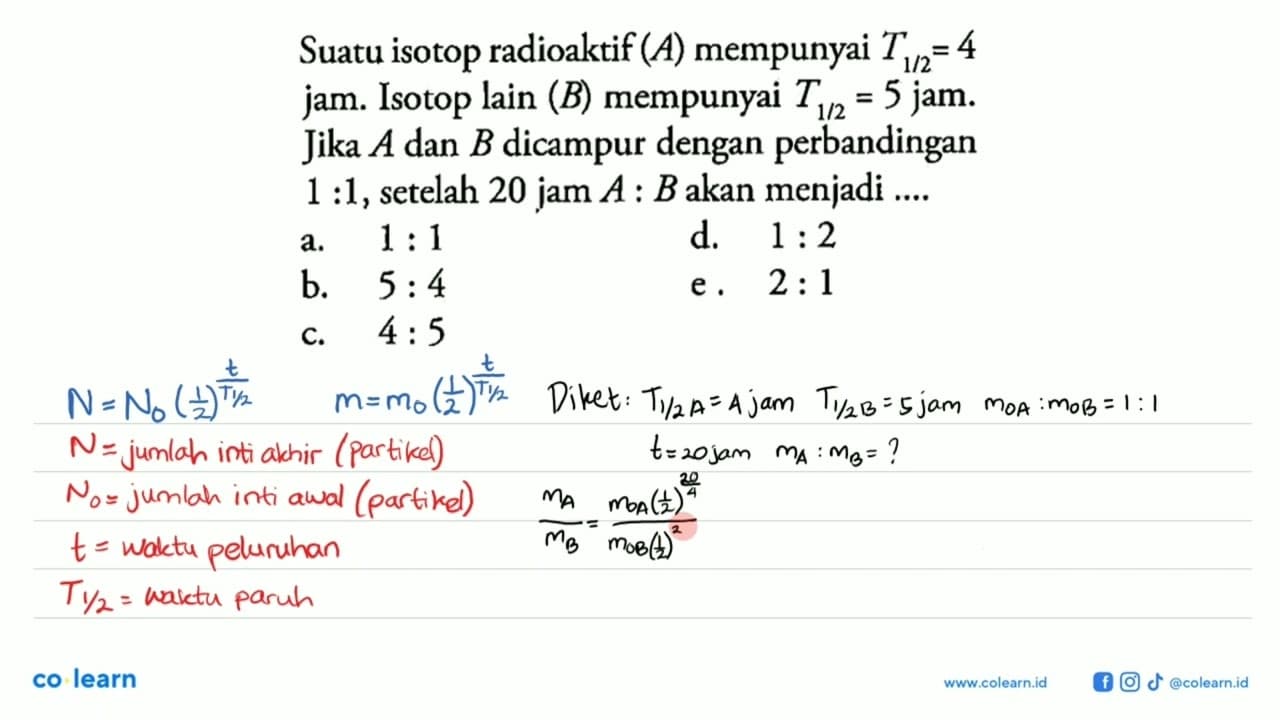 Suatu isotop radioaktif (A) mempunyai T1/2 = 4
jam. Isotop lain (B) mempunyai T1/2 = 5 jam.
Jika A dan B dicampur dengan perbandingan
1 :1, setelah 20 jam A : B akan menjadi ....
a. 1 : 1 d. 1 : 2
b. 5 : 4 e . 2 : 1
c. 4 : 5
N = N0 (1/2)^(t/T1/2) m = m0 (1/2)^(t/T1/2) Diket: T1/2 A = 4 jam T1/2 B = 5 jam m0A : m0B = 1 : 1
N = jumlah inti akhir (partikel) t = 20 jam mA : mB = ?
N0 = jumlah inti awal (partikel) mA/mB = m0A (1/2)^(20/4) / m0B (1/2)^2
t = waktu peluruhan
T1/2 = waktu paruh
co learn www.colearn.id @colearn.id